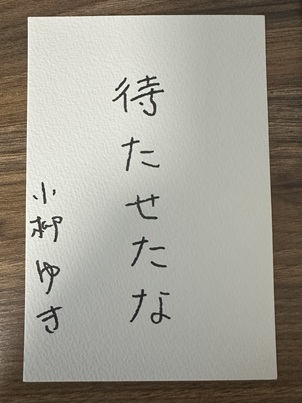 待たせたな
小柳ゆき